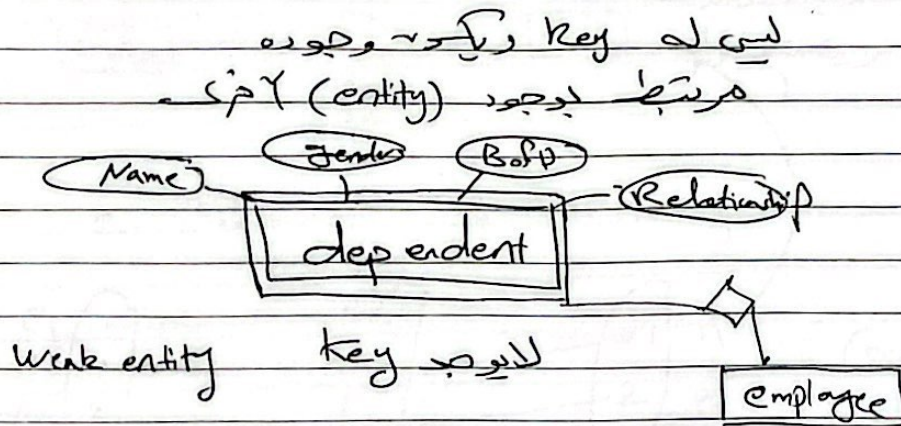 ليس له key ويكون وجوده
مرتبط بوجود (entity) لأخرى
Name gender BofD Relationship
dependent
Weak entity key لا يوجد
employee